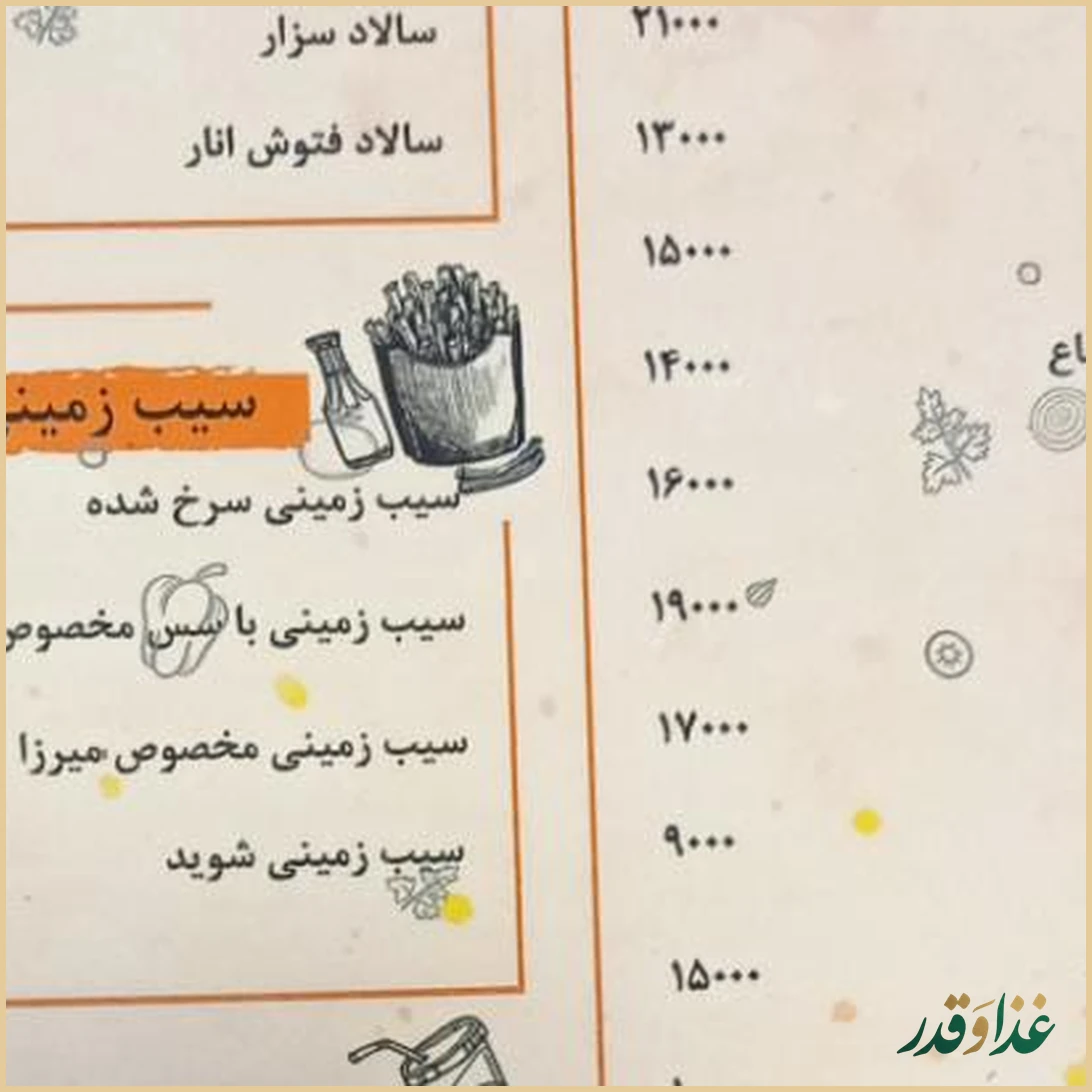 ۲۱۰۰۰
۱۳۰۰۰
۱۵۰۰۰
۱۴۰۰۰
۱۶۰۰۰
۱۹۰۰۰
۱۷۰۰۰
۹۰۰۰
۱۵۰۰۰
سالاد سزار
سالاد فتوش انار
سیب زمینی
سیب زمینی سرخ شده
سیب زمینی با سس مخصوص
سیب زمینی مخصوص میرزا
سیب زمینی شوید
غذا و قدر